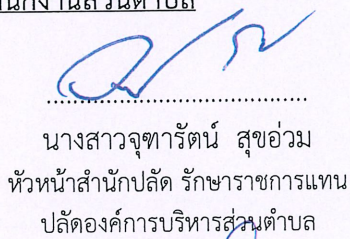 นักงานส่วนตำบล
นางสาวจุฑารัตน์ สุขอ่วม
หัวหน้าสำนักปลัด รักษาราชการแทน
ปลัดองค์การบริหารส่วนตำบล